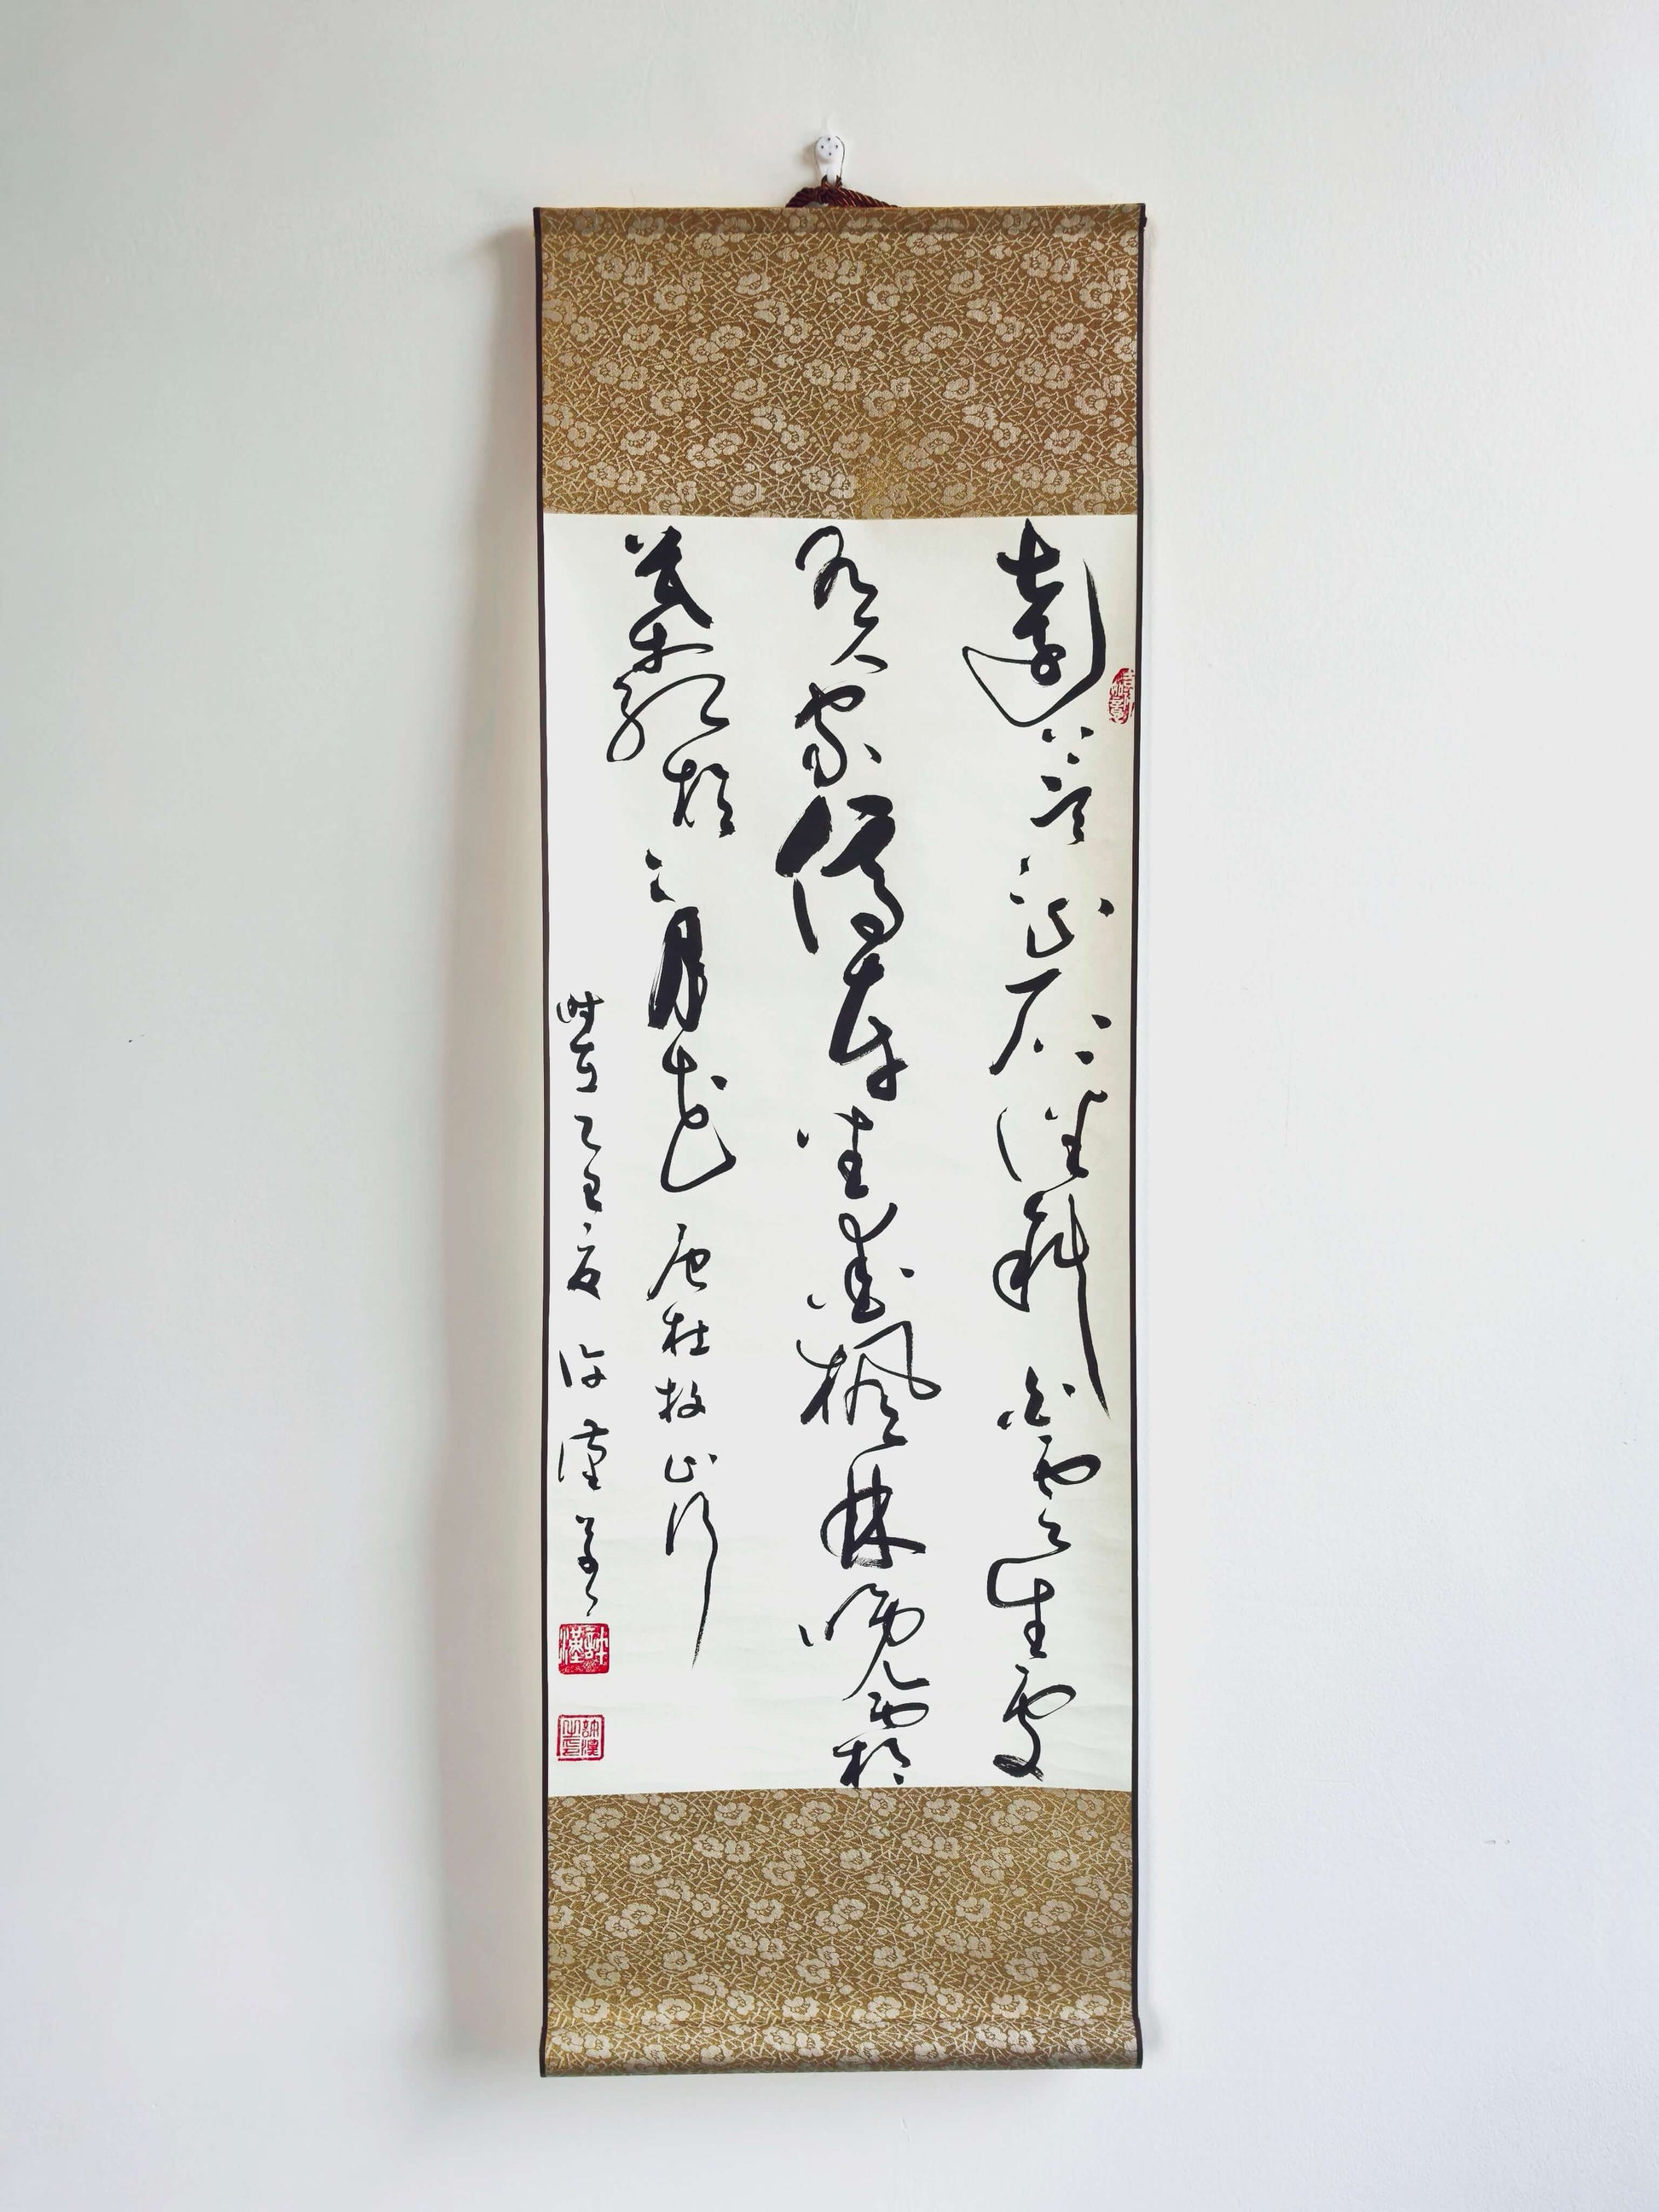 遠上寒山石徑斜白雲生處
有人家停車坐愛楓林晚霜
葉紅於二月花唐杜牧山行
時在乙巳夏許漢書
許漢
許漢之印